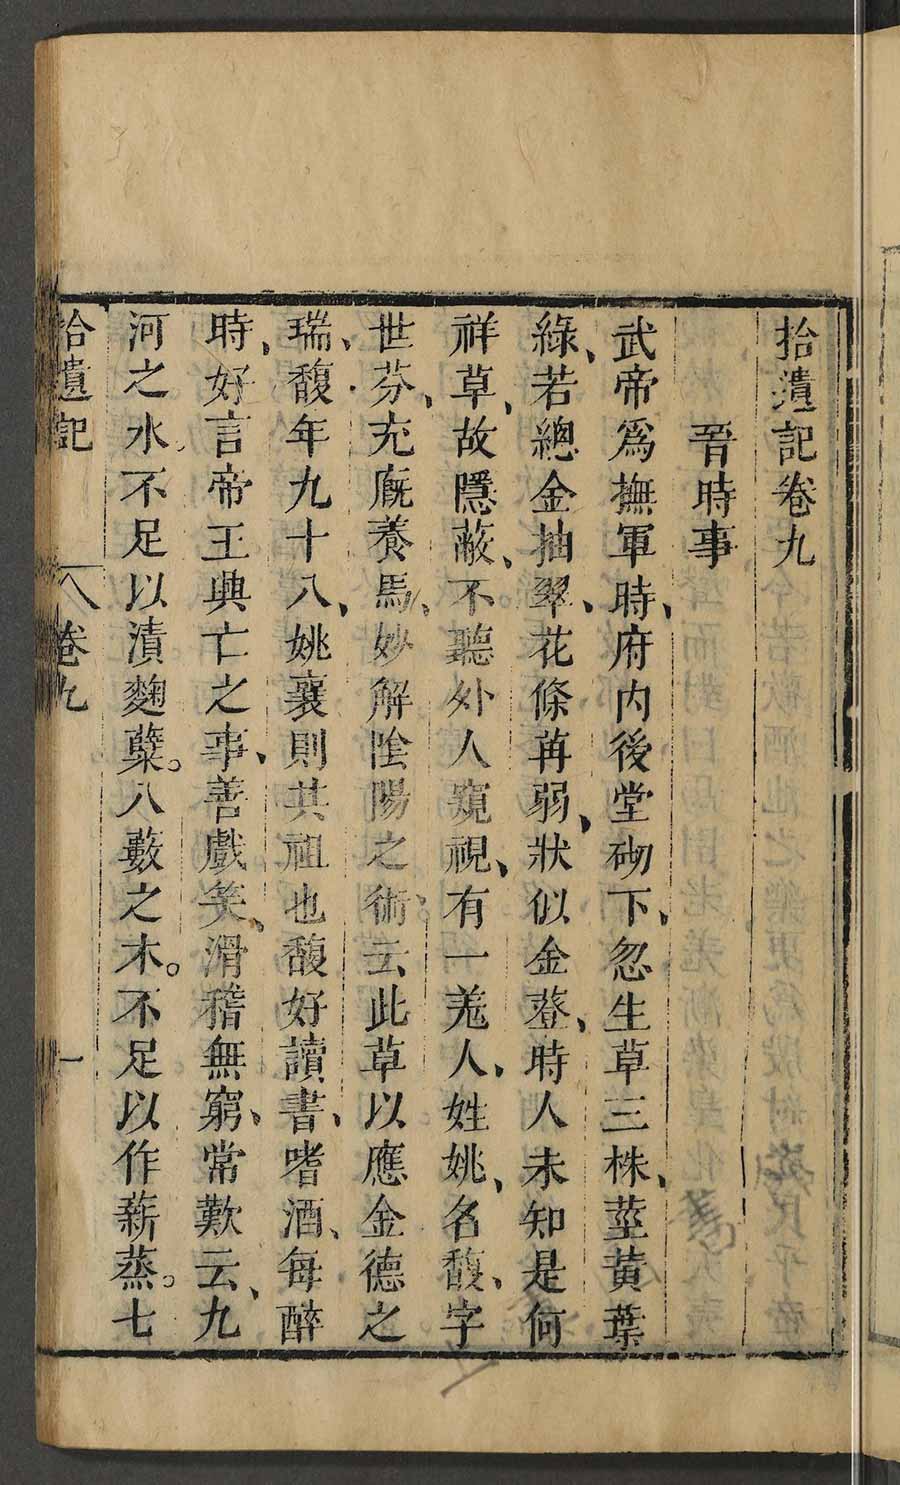 拾遺記卷九
晉時事
武帝爲撫軍時、府内後堂砌下、忽生草三株、莖黃葉
綠、若總金抽翠、花條苒弱、狀似金䔲、時人未知是何
祥草、故隱蔽、不聽外人窺視、有一羗人、姓姚、名馥、字
世芬、充廐養馬、妙解陰陽之術、云此草以應金德之
瑞、馥年九十八、姚襄則其祖也馥好讀書、嗜酒、每醉
時、好言帝王興亡之事、善戲笑、滑稽無窮、常歎云、九
河之水不足以漬麴糵。八藪之木。不足以作薪蒸。七
拾遺記
卷九
一